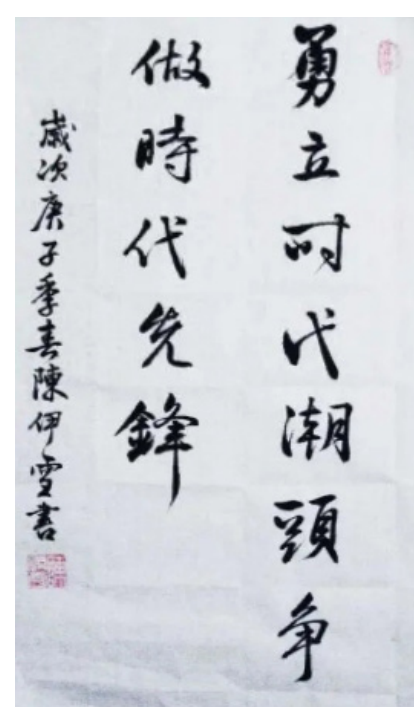 勇立时代潮頭争
做時代先鋒
歲次庚子季春陳伊雪書